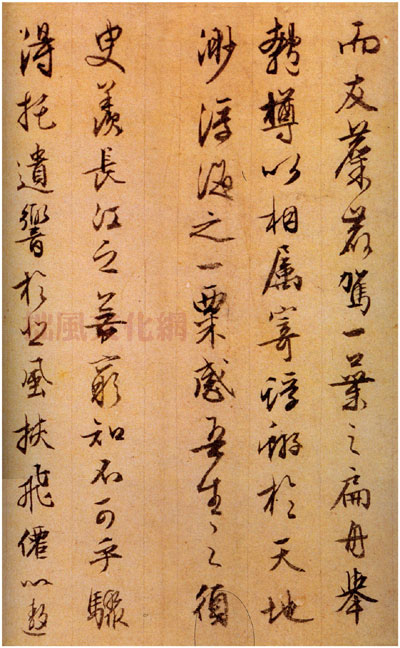 而友麋鹿駕一葉之扁舟舉
匏樽以相属寄蜉蝣於天地
渺浮海之一粟感吾生之須
臾羨長江之無窮知不可乎驟
得托遺響於悲風挾飛僊以遨
風文化網